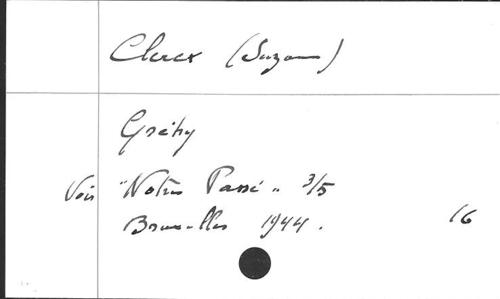 Clercx (Suzanne)
Grétry
Voir "Notre Passé" 3/5
Bruxelles 1944. 16